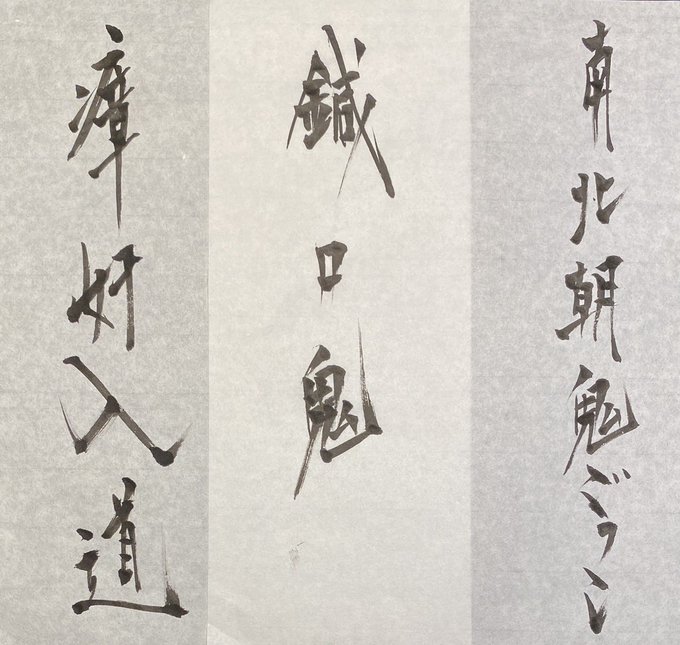 南北朝鬼ごっこ
鍼口鬼
瘴奸入道